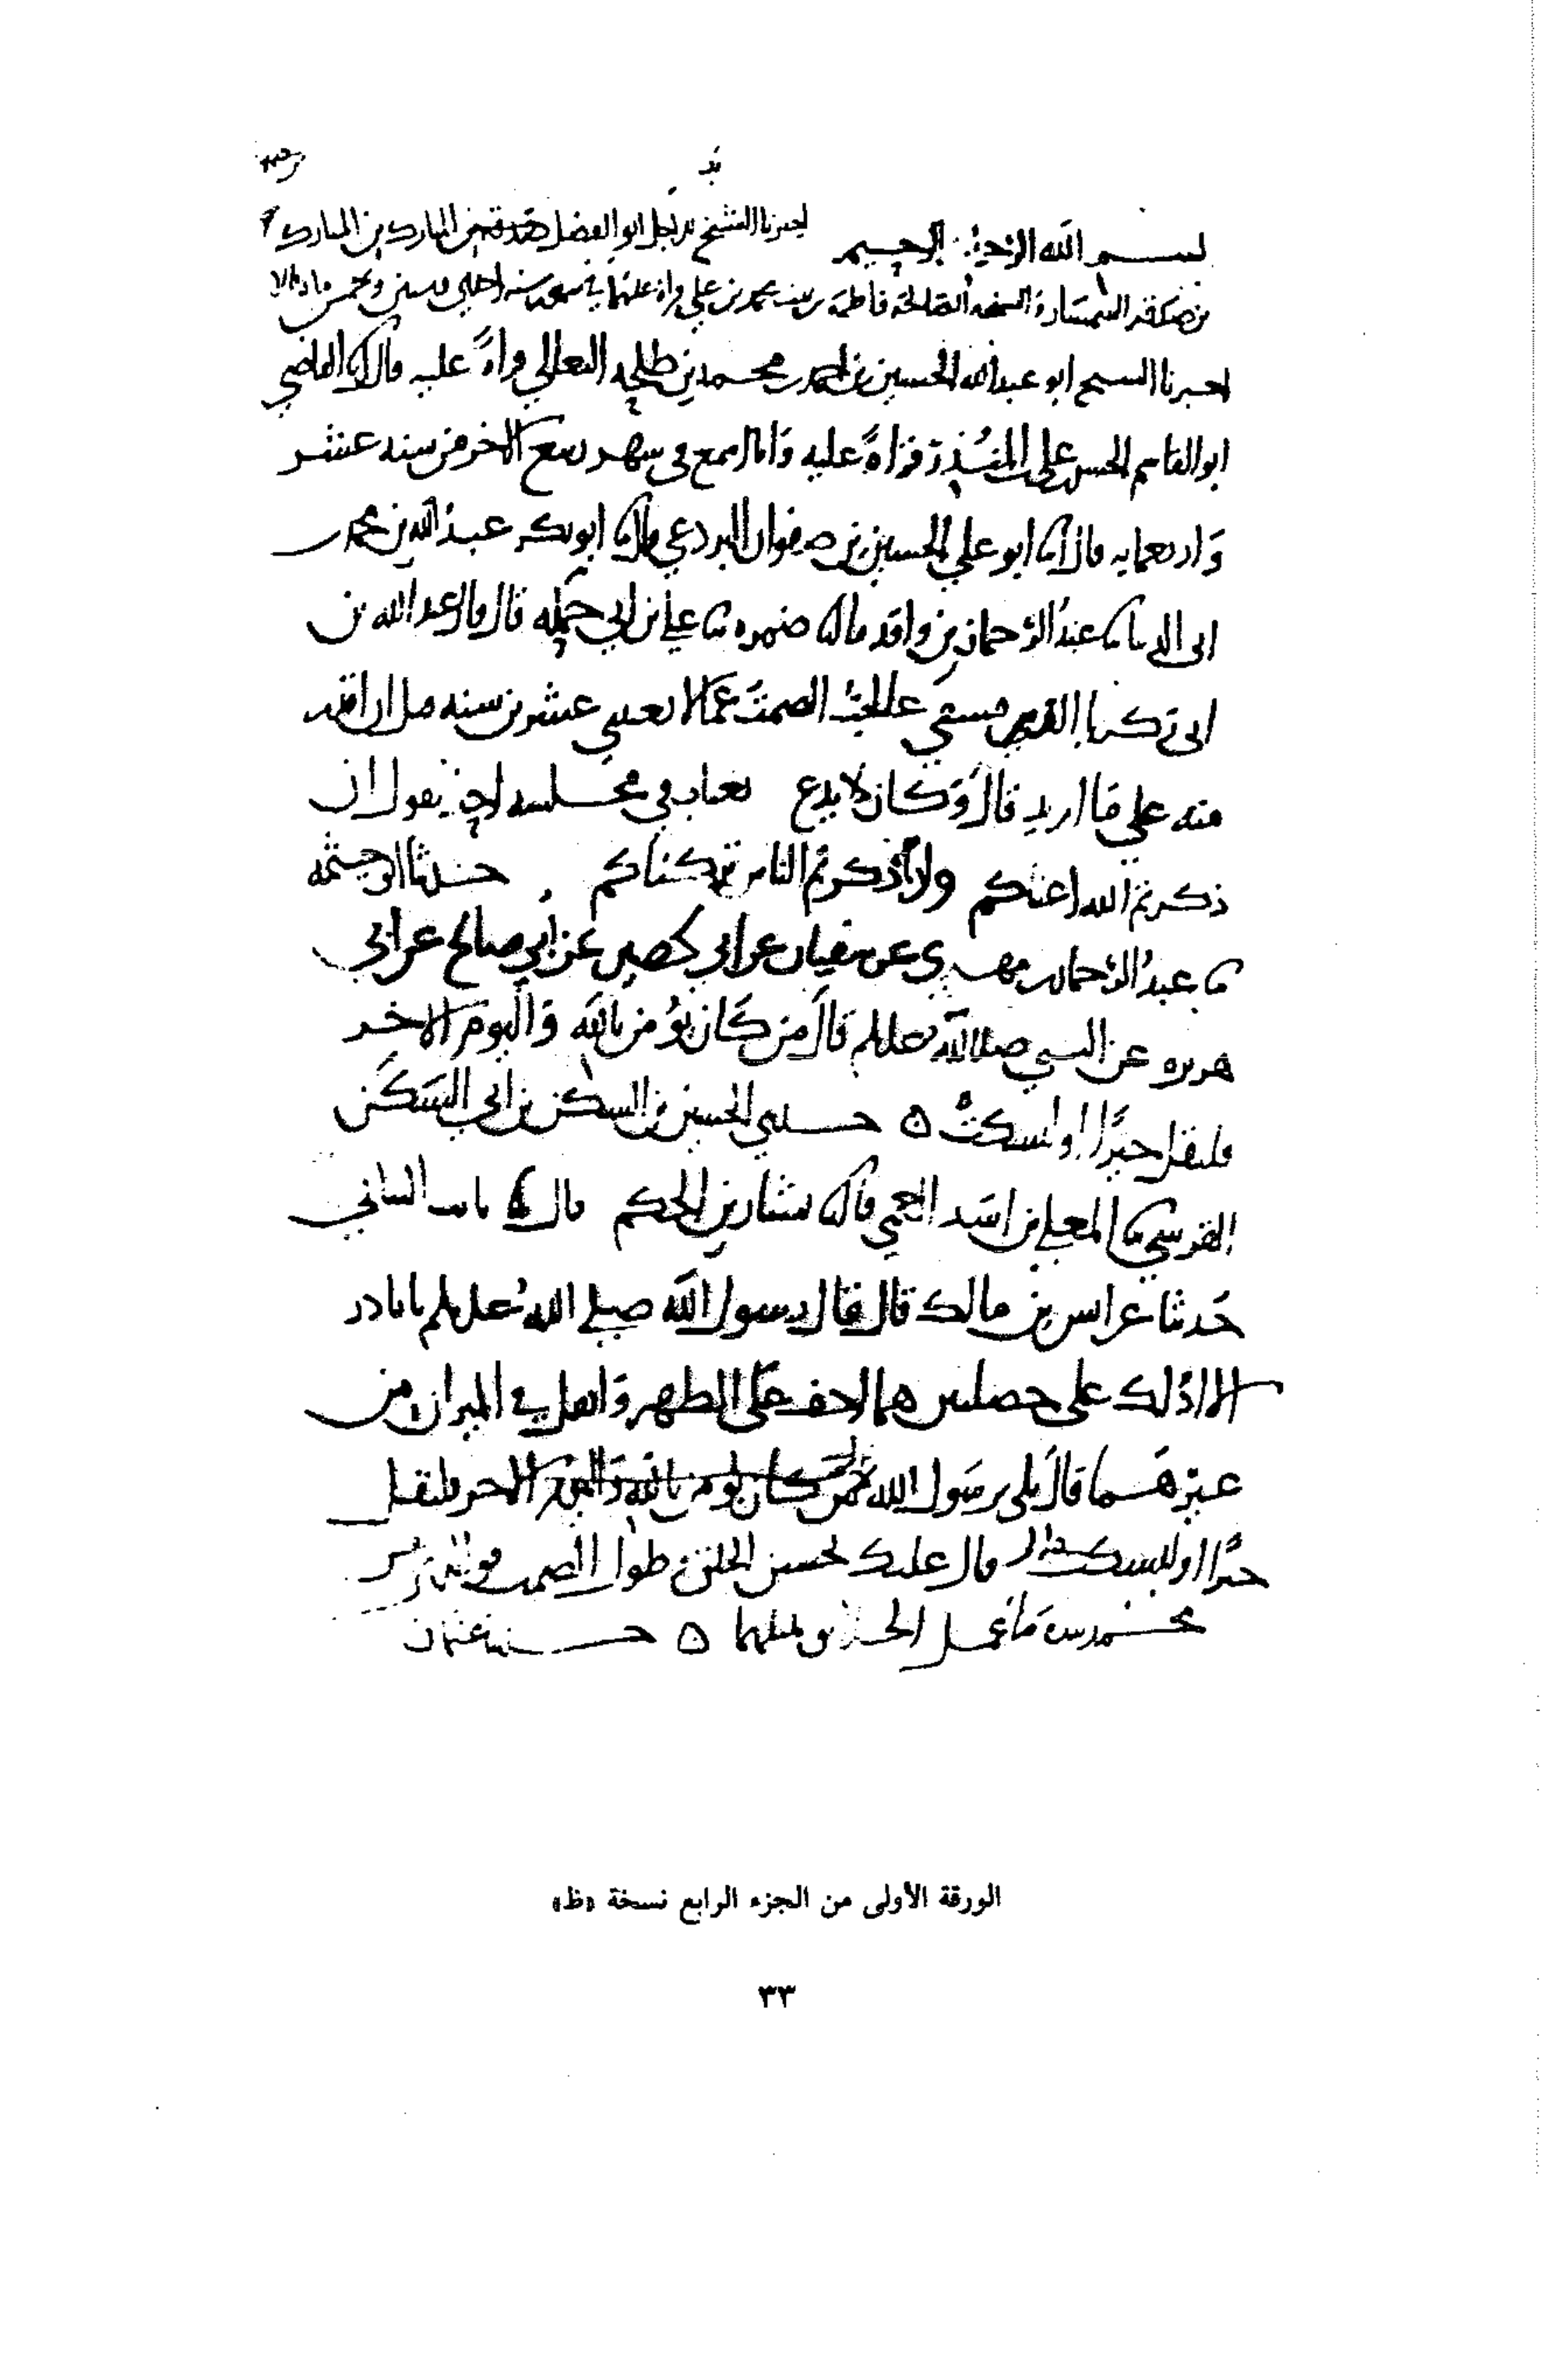 بسم الله الرحمن الرحيم اخبرنا الشيخ ابو الفضل المبارك بن المبارك
بن صدقة السمسار والشيخة الصالحة فاطمة محمد بن علي قراة عليهما
اخبرنا الشيخ ابو عبدالله الحسين بن احمد بن محمد بن طلحه النعالي قراةً عليه قال القاضي
ابو القاسم الحسن بن علي بن المنذر قراةً عليه وانا اسمع في شهر ربيع الاخر من سنه عشر
وار بعمايه قال انا ابو علي الحسين بن صفوان البردعي قال ابو بكر عبد الله بن محمد بن
ابي الدنيا عبد الرحمان بن واقد قال ضمره علي بن ابي حمله قال قال عبد الله بن
ابي زكريا الصمت عما لا يعنيني عشرين سنه قبل ان اقدر
منه على ما اريد قال وكان لا يدع يغتاب في مجلسه احد يقول ان
ذكرتم الله اعنّاكم وان ذكرتم الناس تركناكم حدثنا ابو خيثمه
نا عبد الرحمان بن مهدي عن سفيان عن ابي حصين عن ابي صالح عن ابي
هريره عن النبي صلى الله عليه وسلم قال من كان يؤمن بالله واليوم الاخر
فليقل خيرًا او ليسكت ه حدثني الحسين بن السكن بن ابي السكن
القرسي نا المعلى بن اسد العمي قال نا بشار بن الحكم قال نا ثابت البناني
حدثنا عن انس بن مالك قال قال رسول الله صلى الله عليه وسلم يا با ذر
الا ادلك على خصلتين هما اخف على الظهر واثقل في الميزان من
غيرهما قال بلى يرسول الله من كان يومن بالله واليوم الاخر فليقل
خيرًا او ليسكت قال عليك بحسن الخلق وطول الصمت فوالذي نفس
محمد بيده ما عمل الخلايق بمثلهما ه حدثنا عثمان
الورقة الأولى من الجزء الرابع نسخة «ظ»
٣٣